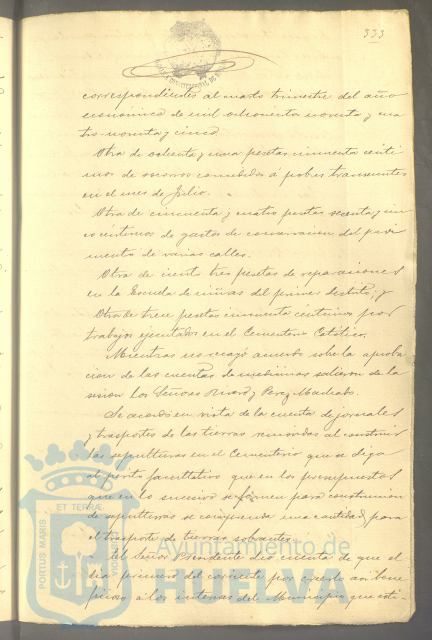 333
correspondientes al cuarto trimestre del año
económico de mil ochocientos noventa y cua
tro-noventa y cinco
Otra de ochenta y una pesetas cincuenta cénti
mos de socorros concedidos á pobres transeuntes
en el mes de Julio.
Otra de cincuenta y cuatro pesetas sesenta y cin
co céntimos de gastos de conservacion del pavi
mento de varias calles.
Otra de ciento tres pesetas de reparaciones
en la Escuela de niñas del primer distrito; y
Otra de trece pesetas cincuenta céntimos por
trabajos ejecutados en el Cementerio Católico.
Mientras se acuerdo sobre la aproba
cion de las cuentas de medicinas salieron de la
sesion los Señores y Perez Machado.
Se acordó en vista de la cuenta de jornales
y trasportes de las tierras removidas al construir
las sepulturas en el Cementerio que se diga
al perito facultativo que en los presupuestos
que en lo sucesivo se formen para construccion
de sepulturas se comprenda una cantidad para
el trasporte de tierras sobrantes.
El Señor Presidente dió cuenta de que el
dia primero del corriente por creerlo asi bene
ficioso á los intereses del Municipio
ET TERRÆ
PORTUS MARIS
Ayuntamiento de
HUELVA